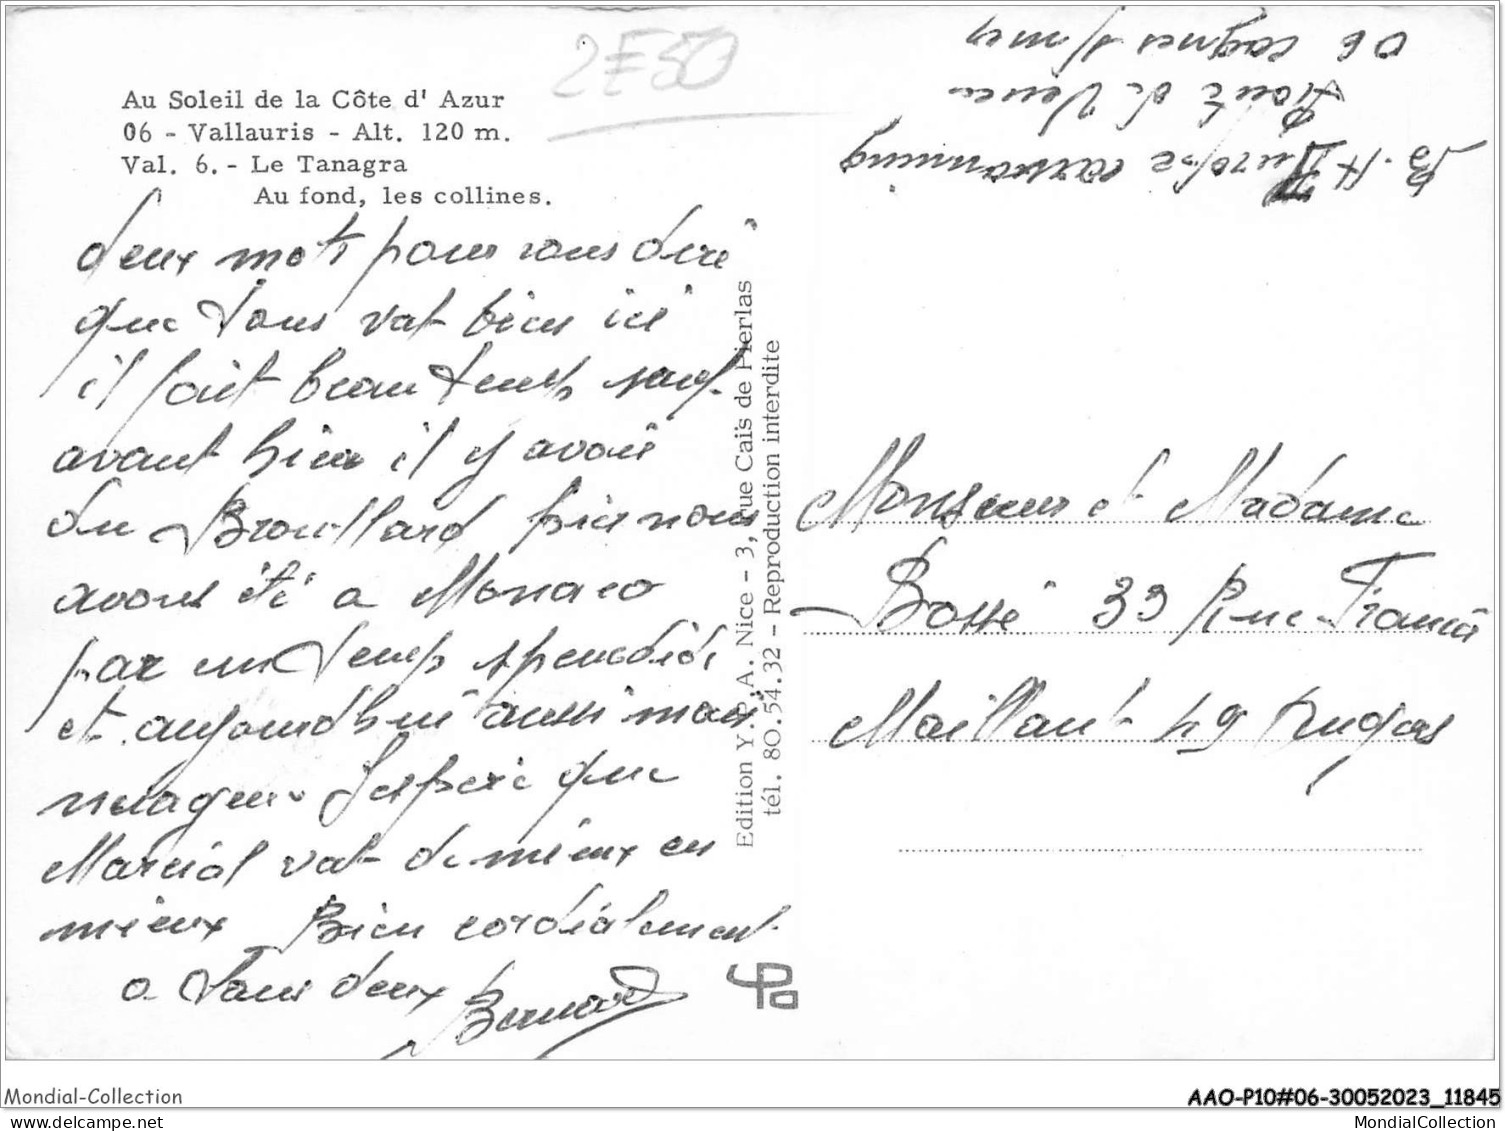 2E50
Au Soleil de la Côte d' Azur
06 - Vallauris - Alt. 120 m.
Val. 6. - Le Tanagra
Au fond, les collines.
deux mots pour vous dire
que tous vat bien ici
il fait beau temps sauf
avant hier il y avais
du Brouillard puis nous
avons été a Monaco
par un temps spendide
et aujourd'hui aussi mais
nuageux J'espere que
Marcial vat de mieux en
mieux Bien cordialement
a tous deux Bernard
Edition Y. P. A. Nice - 3, rue Caïs de Pierlas
tél. 80.54.32 - Reproduction interdite
YPA
B. A Europe caravaning
Route de Vence
06 cagnes s/mer
Monsieur et Madame
Bossé 33 Rue Francis
Meilland 49 Angers
Mondial-Collection
AAO-P10#06-30052023_11845
www.mondial-collection.com
MondialCollection